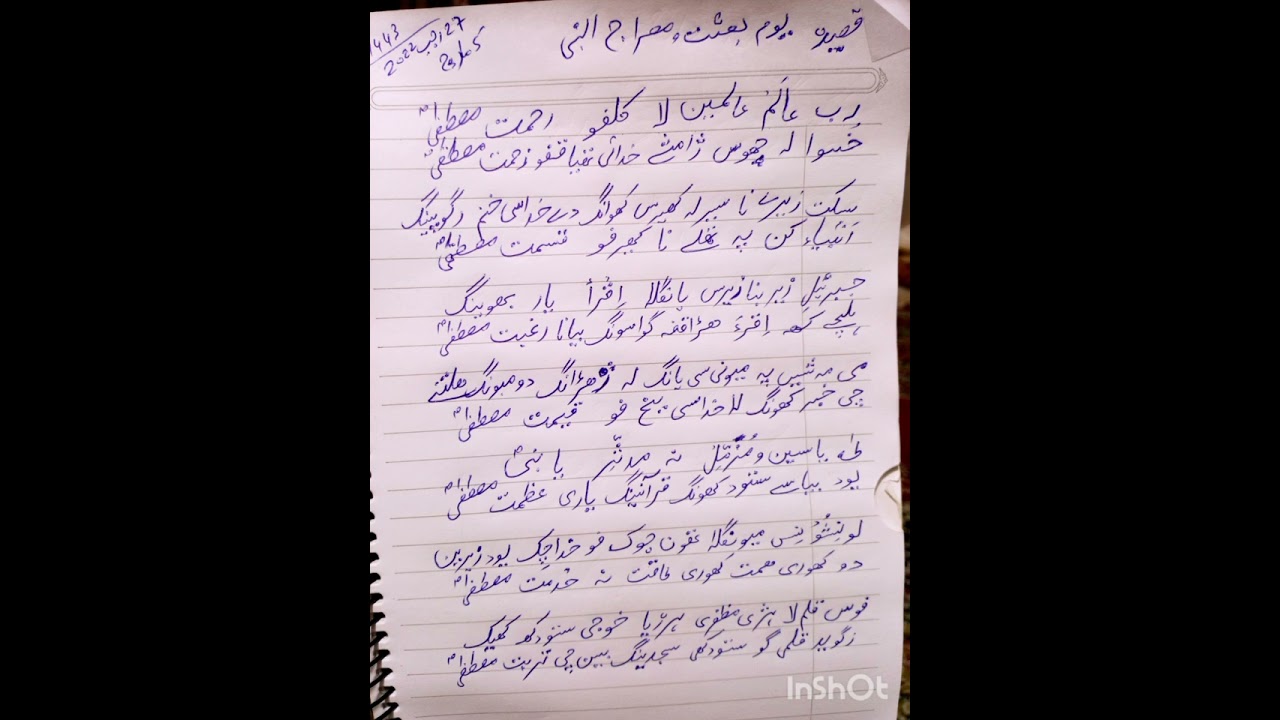 قصیدہ یوم بعثت و معراج النبی
27 رجب 1443
2022
رب عالم عالمین لا کلفو رحمت مصطفیؐ
خسوا لہ چھوس ژامشے خدائی تفیاقفو زحمت مصطفیؐ
سکت زیرے نا سیر لہ کھرس کھوانگ دے خداسی ختم رگوینگ
انبیاء کن پہ تھلے نا کھرفو قسمت مصطفیؐ
جبرئیل زیر بنا زیرس یانگلا اِقرأ یار بھوینگ
پلچے کھہ اِقرءَ ھرژاقفہ گواسونگ بیانا رغبت مصطفیؐ
می مہ شیس پہ میونی سی یانگ لہ ژھرژانگ دومیونگ ھلتنے
چی خبر کھونگ لا خداسی بیخ فو قیمت مصطفیؐ
طہ یاسین و مُزَمِّلُ نہ مدثّر یا نبیؐ
یود بیاسے ستود کھونگ قرآنینگ یاری عظمت مصطفیؐ
لونِشُو نِس میونگلا غفون چوک فو خداچک یود زیرین
دو کھوری ہمت کھوری طاقت نہ خدمت مصطفیؐ
فوس قلم لا ہرژی مظفری ہرژیا خوجی ستودکھ کھیک
زگوید قلمی گو ستودکھی سجدینگ بین چی تربت مصطفیؐ
InShOt